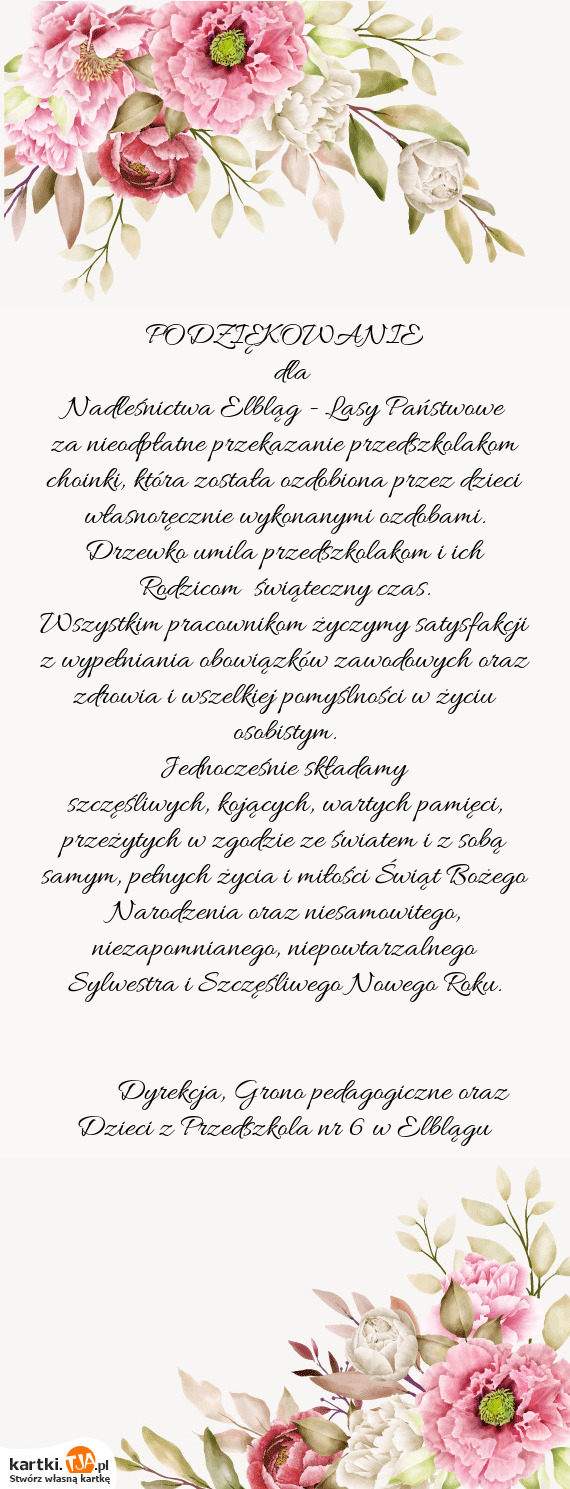 PODZIĘKOWANIE
dla
Nadleśnictwa Elbląg - Lasy Państwowe
za nieodpłatne przekazanie przedszkolakom
choinki, która została ozdobiona przez dzieci
własnoręcznie wykonanymi ozdobami.
Drzewko umila przedszkolakom i ich
Rodzicom świąteczny czas.
Wszystkim pracownikom życzymy satysfakcji
z wypełniania obowiązków zawodowych oraz
zdrowia i wszelkiej pomyślności w życiu
osobistym.
Jednocześnie składamy
szczęśliwych, kojących, wartych pamięci,
przeżytych w zgodzie ze światem i z sobą
samym, pełnych życia i miłości Świąt Bożego
Narodzenia oraz niesamowitego,
niezapomnianego, niepowtarzalnego
Sylwestra i Szczęśliwego Nowego Roku.
Dyrekcja, Grono pedagogiczne oraz
Dzieci z Przedszkola nr 6 w Elblągu
kartki.TJA.pl
Stwórz własną kartkę